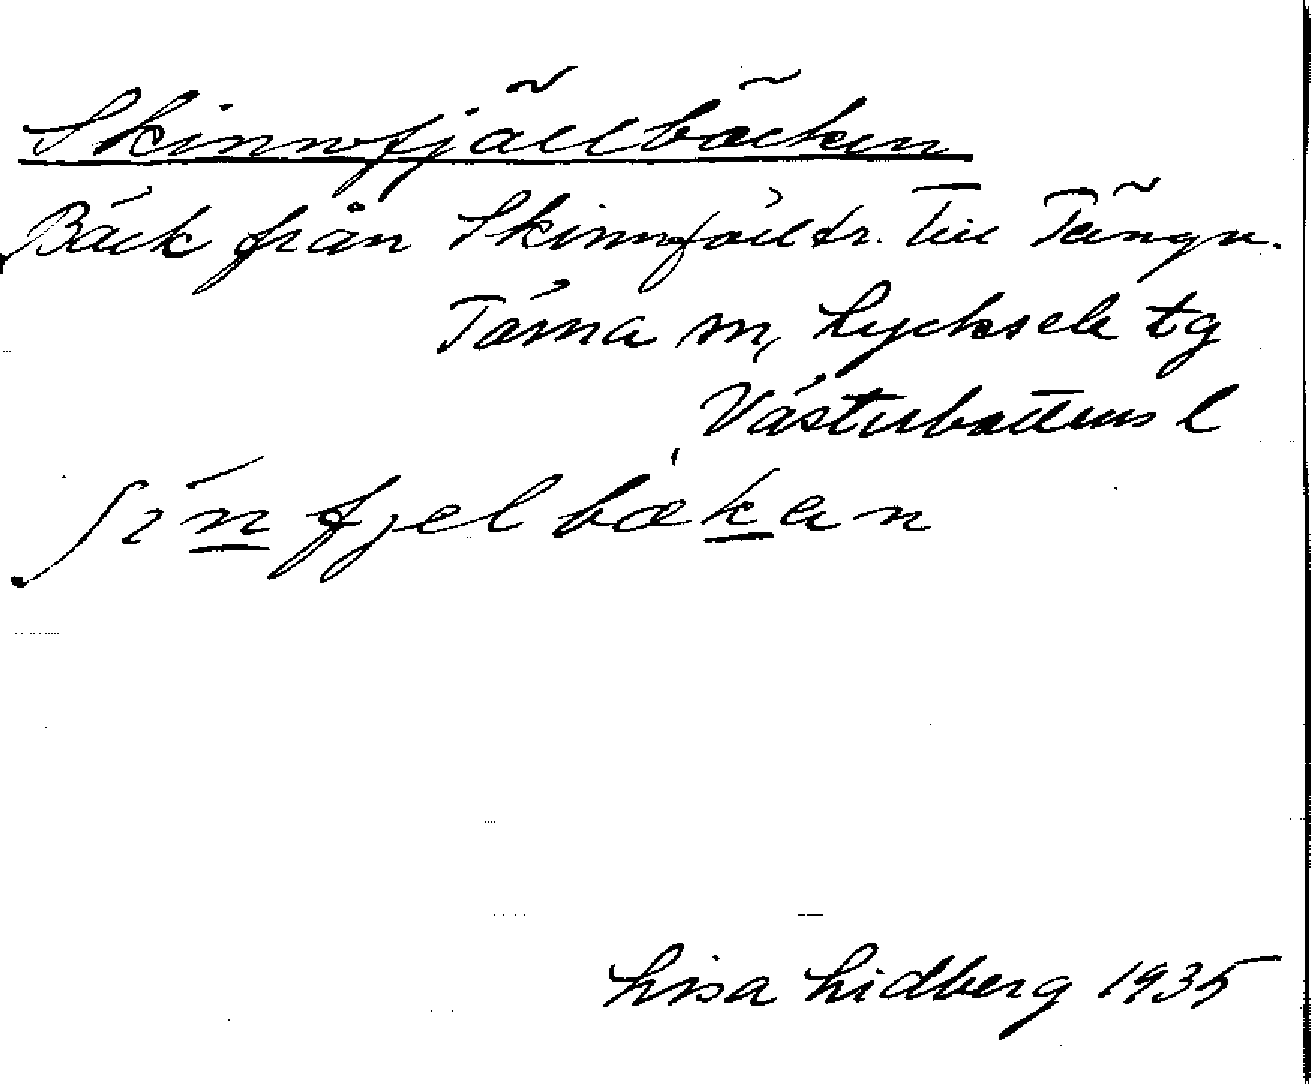 Skinnfjällbäcken
Bäck från Skinnfjälltr. till Tängv.
Tärna sn, Lycksele tg
Västerbottens l
ʃɩn̲fjelbæk̲an
Lisa Lidberg 1935